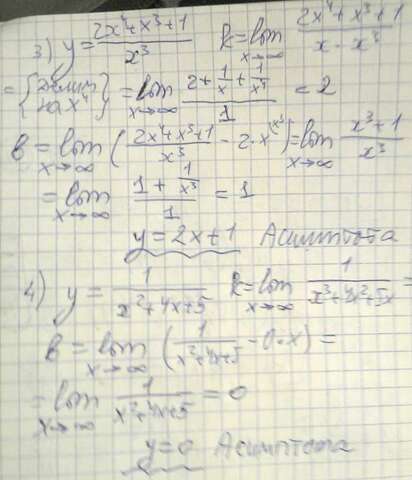 3) y = (2x⁴+x³+1)/x³   k = lim x→∞ (2x⁴+x³+1)/(x·x³)
= {делим на x⁴} = lim x→∞ (2 + 1/x + 1/x⁴)/1 = 2
b = lim x→∞ ((2x⁴+x³+1)/x³ - 2·x^(x³)) = lim x→∞ (x³+1)/x³
= lim x→∞ (1 + 1/x³)/1 = 1
y = 2x+1 Асимптота
4) y = 1/(x²+4x+5)   k = lim x→∞ 1/(x³+4x²+5x) =
b = lim x→∞ (1/(x²+4x+5) - 0·x) =
= lim x→∞ 1/(x²+4x+5) = 0
y=0 Асимптота